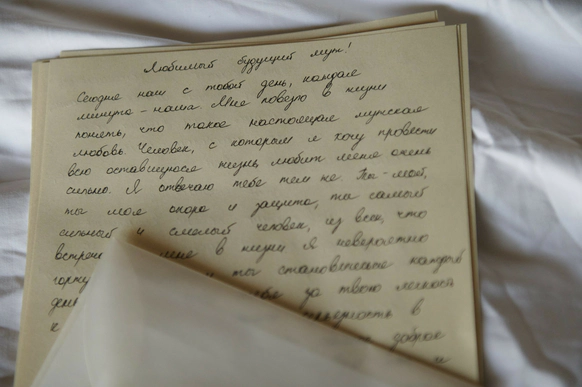 Любимый будущий муж!
Сегодня наш с тобой день, каждая
минута - наша. Мне повезло в жизни
понять, что такое настоящая мужская
любовь. Человек, с которым я хочу провести
всю оставшуюся жизнь, любит меня очень
сильно. Я отвечаю тебе тем же. Ты - мой,
ты моя опора и защита, ты самый
сильный и смелый человек, из всех, что
встреч мне в жизни Я невероятно
горжу и ты становишься каждый
день за твою
в
к доброе
и